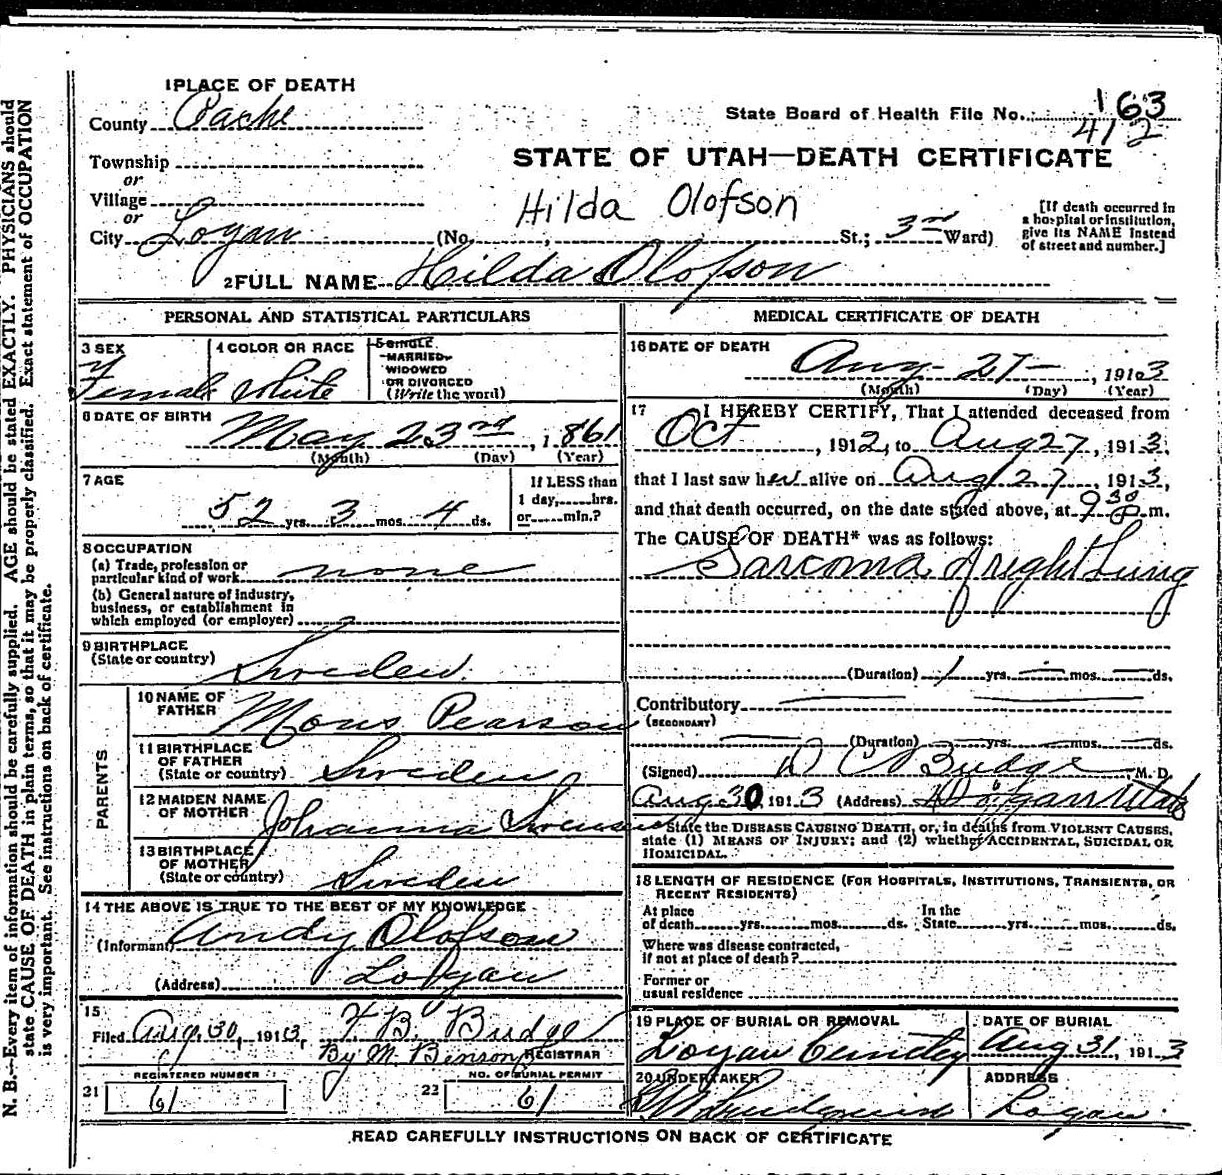 1 PLACE OF DEATH
County Cache
State Board of Health File No. 163
412
Township
or
Village
or
City Logan (No. , St.; 3rd Ward)
STATE OF UTAH—DEATH CERTIFICATE
Hilda Olofson
[If death occurred in a hospital or institution, give its NAME instead of street and number.]
2 FULL NAME Hilda Olofson
PERSONAL AND STATISTICAL PARTICULARS
3 SEX
Female
4 COLOR OR RACE
White
5 SINGLE,
MARRIED,
WIDOWED
OR DIVORCED
(Write the word)
6 DATE OF BIRTH
May 23rd, 1861
(Month) (Day) (Year)
7 AGE
52 yrs. 3 mos. 4 ds.
If LESS than
1 day, hrs.
or min.?
8 OCCUPATION
(a) Trade, profession or
particular kind of work none
(b) General nature of industry,
business, or establishment in
which employed (or employer)
9 BIRTHPLACE
(State or country) Sweden.
PARENTS
10 NAME OF
FATHER Mons Pearson
11 BIRTHPLACE
OF FATHER
(State or country) Sweden
12 MAIDEN NAME
OF MOTHER Johanna
13 BIRTHPLACE
OF MOTHER
(State or country) Sweden
14 THE ABOVE IS TRUE TO THE BEST OF MY KNOWLEDGE
(Informant) Andy Olofson
(Address) Logan
15
Filed Aug. 30, 1913, F. B. Budge
By M. Benson REGISTRAR
21 REGISTERED NUMBER
61
22 NO. OF BURIAL PERMIT
61
MEDICAL CERTIFICATE OF DEATH
16 DATE OF DEATH
Aug - 27 - , 1913
(Month) (Day) (Year)
17 I HEREBY CERTIFY, That I attended deceased from
Oct , 1912, to Aug 27, 1913,
that I last saw her alive on Aug 27, 1913,
and that death occurred, on the date stated above, at 9 30 P m.
The CAUSE OF DEATH* was as follows:
Sarcoma of right Lung
(Duration) 1 yrs. — mos. — ds.
Contributory
(SECONDARY)
(Duration) yrs. mos. ds.
(Signed) D C Budge, M. D.
Aug 30, 1913 (Address) Logan Utah
*State the DISEASE CAUSING DEATH, or, in deaths from VIOLENT CAUSES,
state (1) MEANS OF INJURY; and (2) whether ACCIDENTAL, SUICIDAL OR
HOMICIDAL.
18 LENGTH OF RESIDENCE (FOR HOSPITALS, INSTITUTIONS, TRANSIENTS, OR
RECENT RESIDENTS)
At place
of death yrs. mos. ds.
In the
State yrs. mos. ds.
Where was disease contracted,
if not at place of death?
Former or
usual residence
19 PLACE OF BURIAL OR REMOVAL
Logan Cemetery
DATE OF BURIAL
Aug 31, 1913
20 UNDERTAKER
ADDRESS
Logan.
READ CAREFULLY INSTRUCTIONS ON BACK OF CERTIFICATE
N. B.—Every item of information should be carefully supplied. AGE should be stated EXACTLY. PHYSICIANS should
state CAUSE OF DEATH in plain terms, so that it may be properly classified. Exact statement of OCCUPATION
is very important. See instructions on back of certificate.